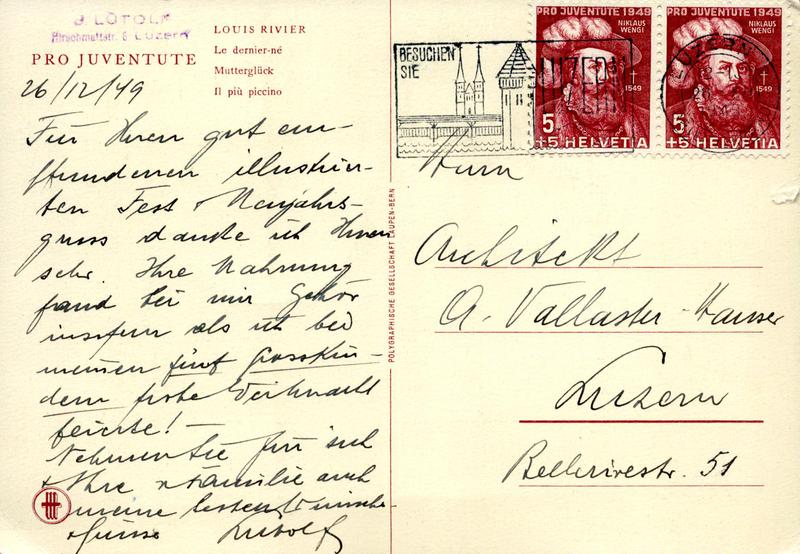 J. LÜTOLF
Hirschmattstr. 8 Luzern
PRO JUVENTUTE
LOUIS RIVIER
Le dernier-né
Mutterglück
Il più piccino
26/12/49
Für Ihren gut em-
pfundenen illustrier-
ten Fest & Neujahrs-
gruss danke ich Ihnen
sehr. Ihre Mahnung
fand bei mir Gehör
insofern als ich bei
meinen fünf Grosskin-
dern frohe Weihnacht
feierte!–
Nehmen Sie für sich
& Ihre Familie auch
meine besten Wünsche
& Grüsse Lütolf
POLYGRAPHISCHE GESELLSCHAFT LAUPEN-BERN
BESUCHEN
SIE
LUZERN
PRO JUVENTUTE 1949
NIKLAUS
WENGI
† 1549
5
+5 HELVETIA
PRO JUVENTUTE 1949
NIKLAUS
WENGI
† 1549
5
+5 HELVETIA
LUZERN
Herrn
Architekt
A. Vallaster-Hauser
Luzern
Bellerivestr. 51